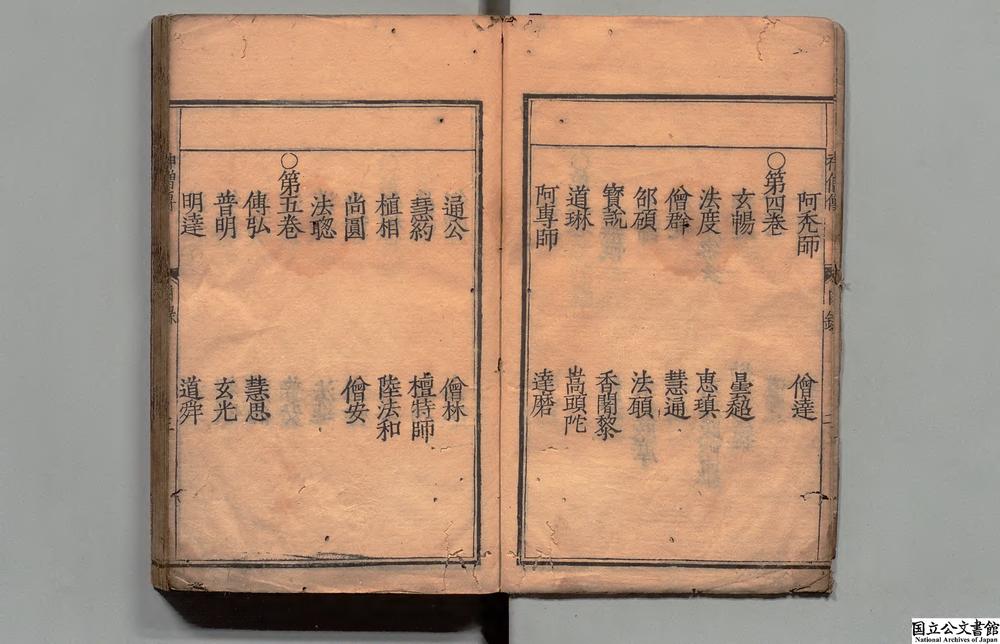 阿禿師 僧達
○第四卷
玄暢 曇超
法度 惠瑱
僧群 慧通
邵碩 法願
寶誌 香闍黎
道琳 嵩頭陀
阿專師 達磨
通公 僧林
慧約 檀特師
植相 陸法和
尚圓 僧安
法聰
○第五卷
傅弘 慧思
普明 玄光
明達 道舜
国立公文書館
National Archives of Japan